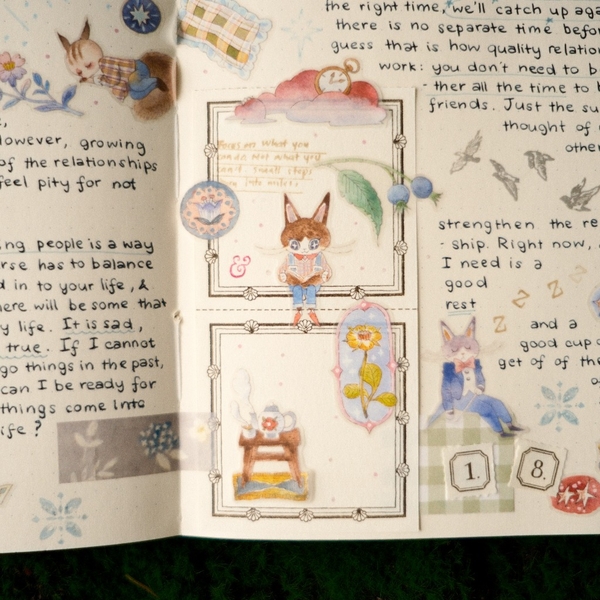 e,
however, growing
of the relationships
feel pity for not
ing people is a way
rse has to balance
d in to your life , &
here will be some that
y life. It is sad,
true. If I cannot
go things in the past,
can I be ready for
things come into
ife ?
Focus on what you
can do Not what you
can't small steps
&
the right time, we'll catch up aga
there is no separate time befor
guess that is how quality relation
work: you don't need to b
- ther all the time to b
friends. Just the su
thought of
other
strengthen the re
- ship. Right now,
I need is a
good
rest
z z z z
and a
good cup o
get of of the
1. 8.